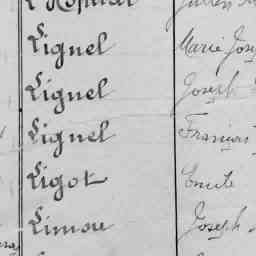 Lignel Marie Jose
Lignel Joseph
Lignel François
Ligot Emile
Limou Joseph